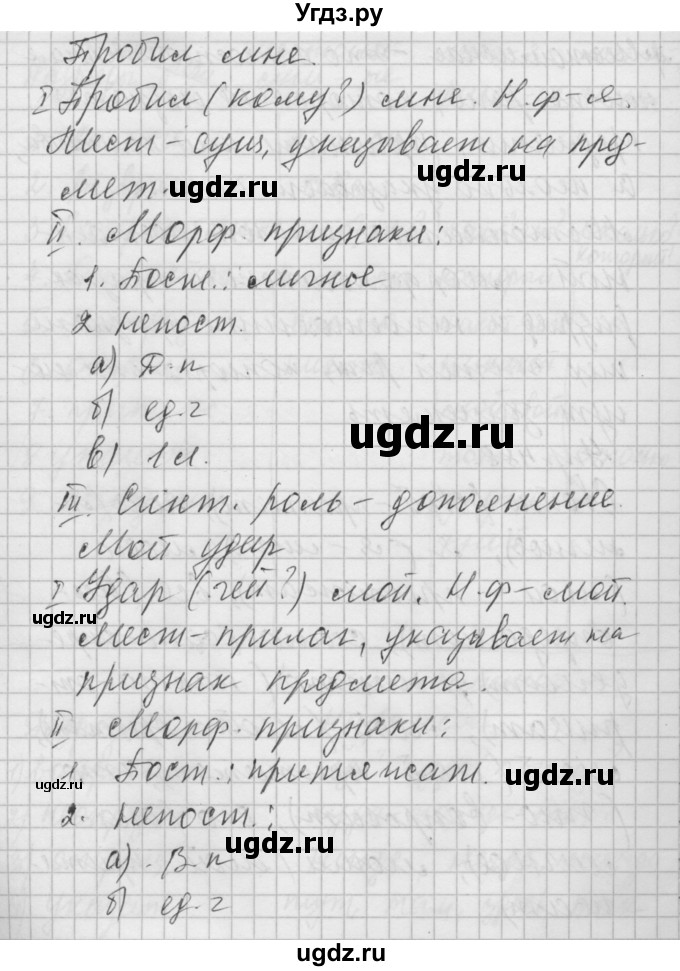 Угдз.ру
Пробил мне.
I Пробил (кому?) мне. Н.ф-я.
Мест-сущ, указывает на пред-
мет.
ugdz.ru ugdz.ru
II. Морф. признаки:
1. Пост.: личное
ugdz.ru
2 непост.
а) Д.п
б) ед.ч
ugdz.ru
в) 1 л.
III. Синт. роль - дополнение.
ugdz.ru
Мой удар
I Удар (чей?) мой. Н.ф-мой.
ugdz.ru
Мест-прилаг, указывает на
признак предмета.
ugdz.ru
II Морф. признаки:
1. Пост.: притяжат.
ugdz.ru ugdz.ru
2. непост.:
ugdz.ru
а) В.п
б) ед.ч
ugdz.ru